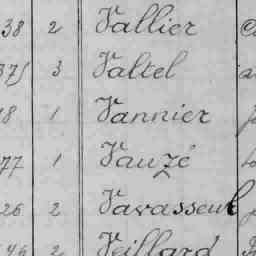 38 2 Vallier
375 3 Valtel
18 1 Vannier
77 1 Vauzé
26 2 Vavasseul
46 2 Veillard